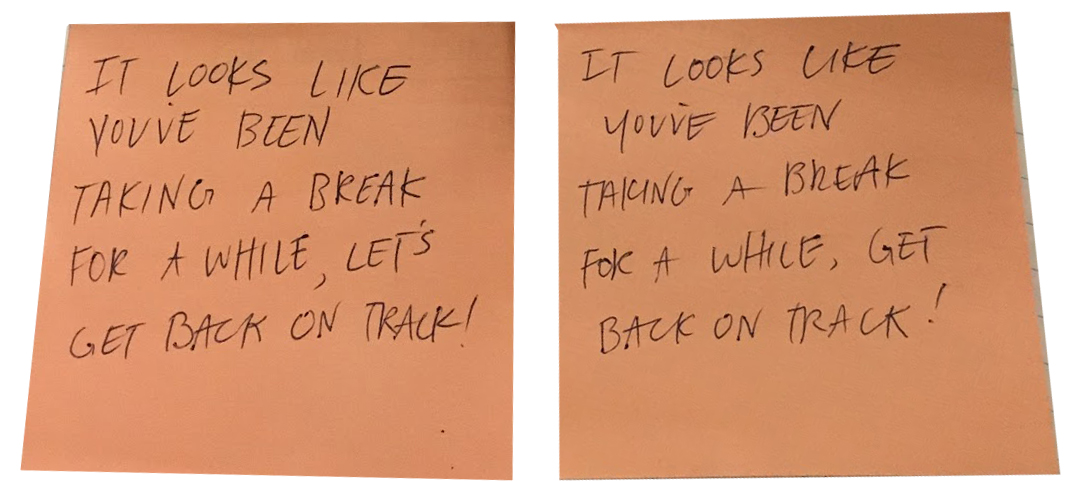 IT LOOKS LIKE
YOU'VE BEEN
TAKING A BREAK
FOR A WHILE, LET'S
GET BACK ON TRACK!
IT LOOKS LIKE
YOU'VE BEEN
TAKING A BREAK
FOR A WHILE, GET
BACK ON TRACK!